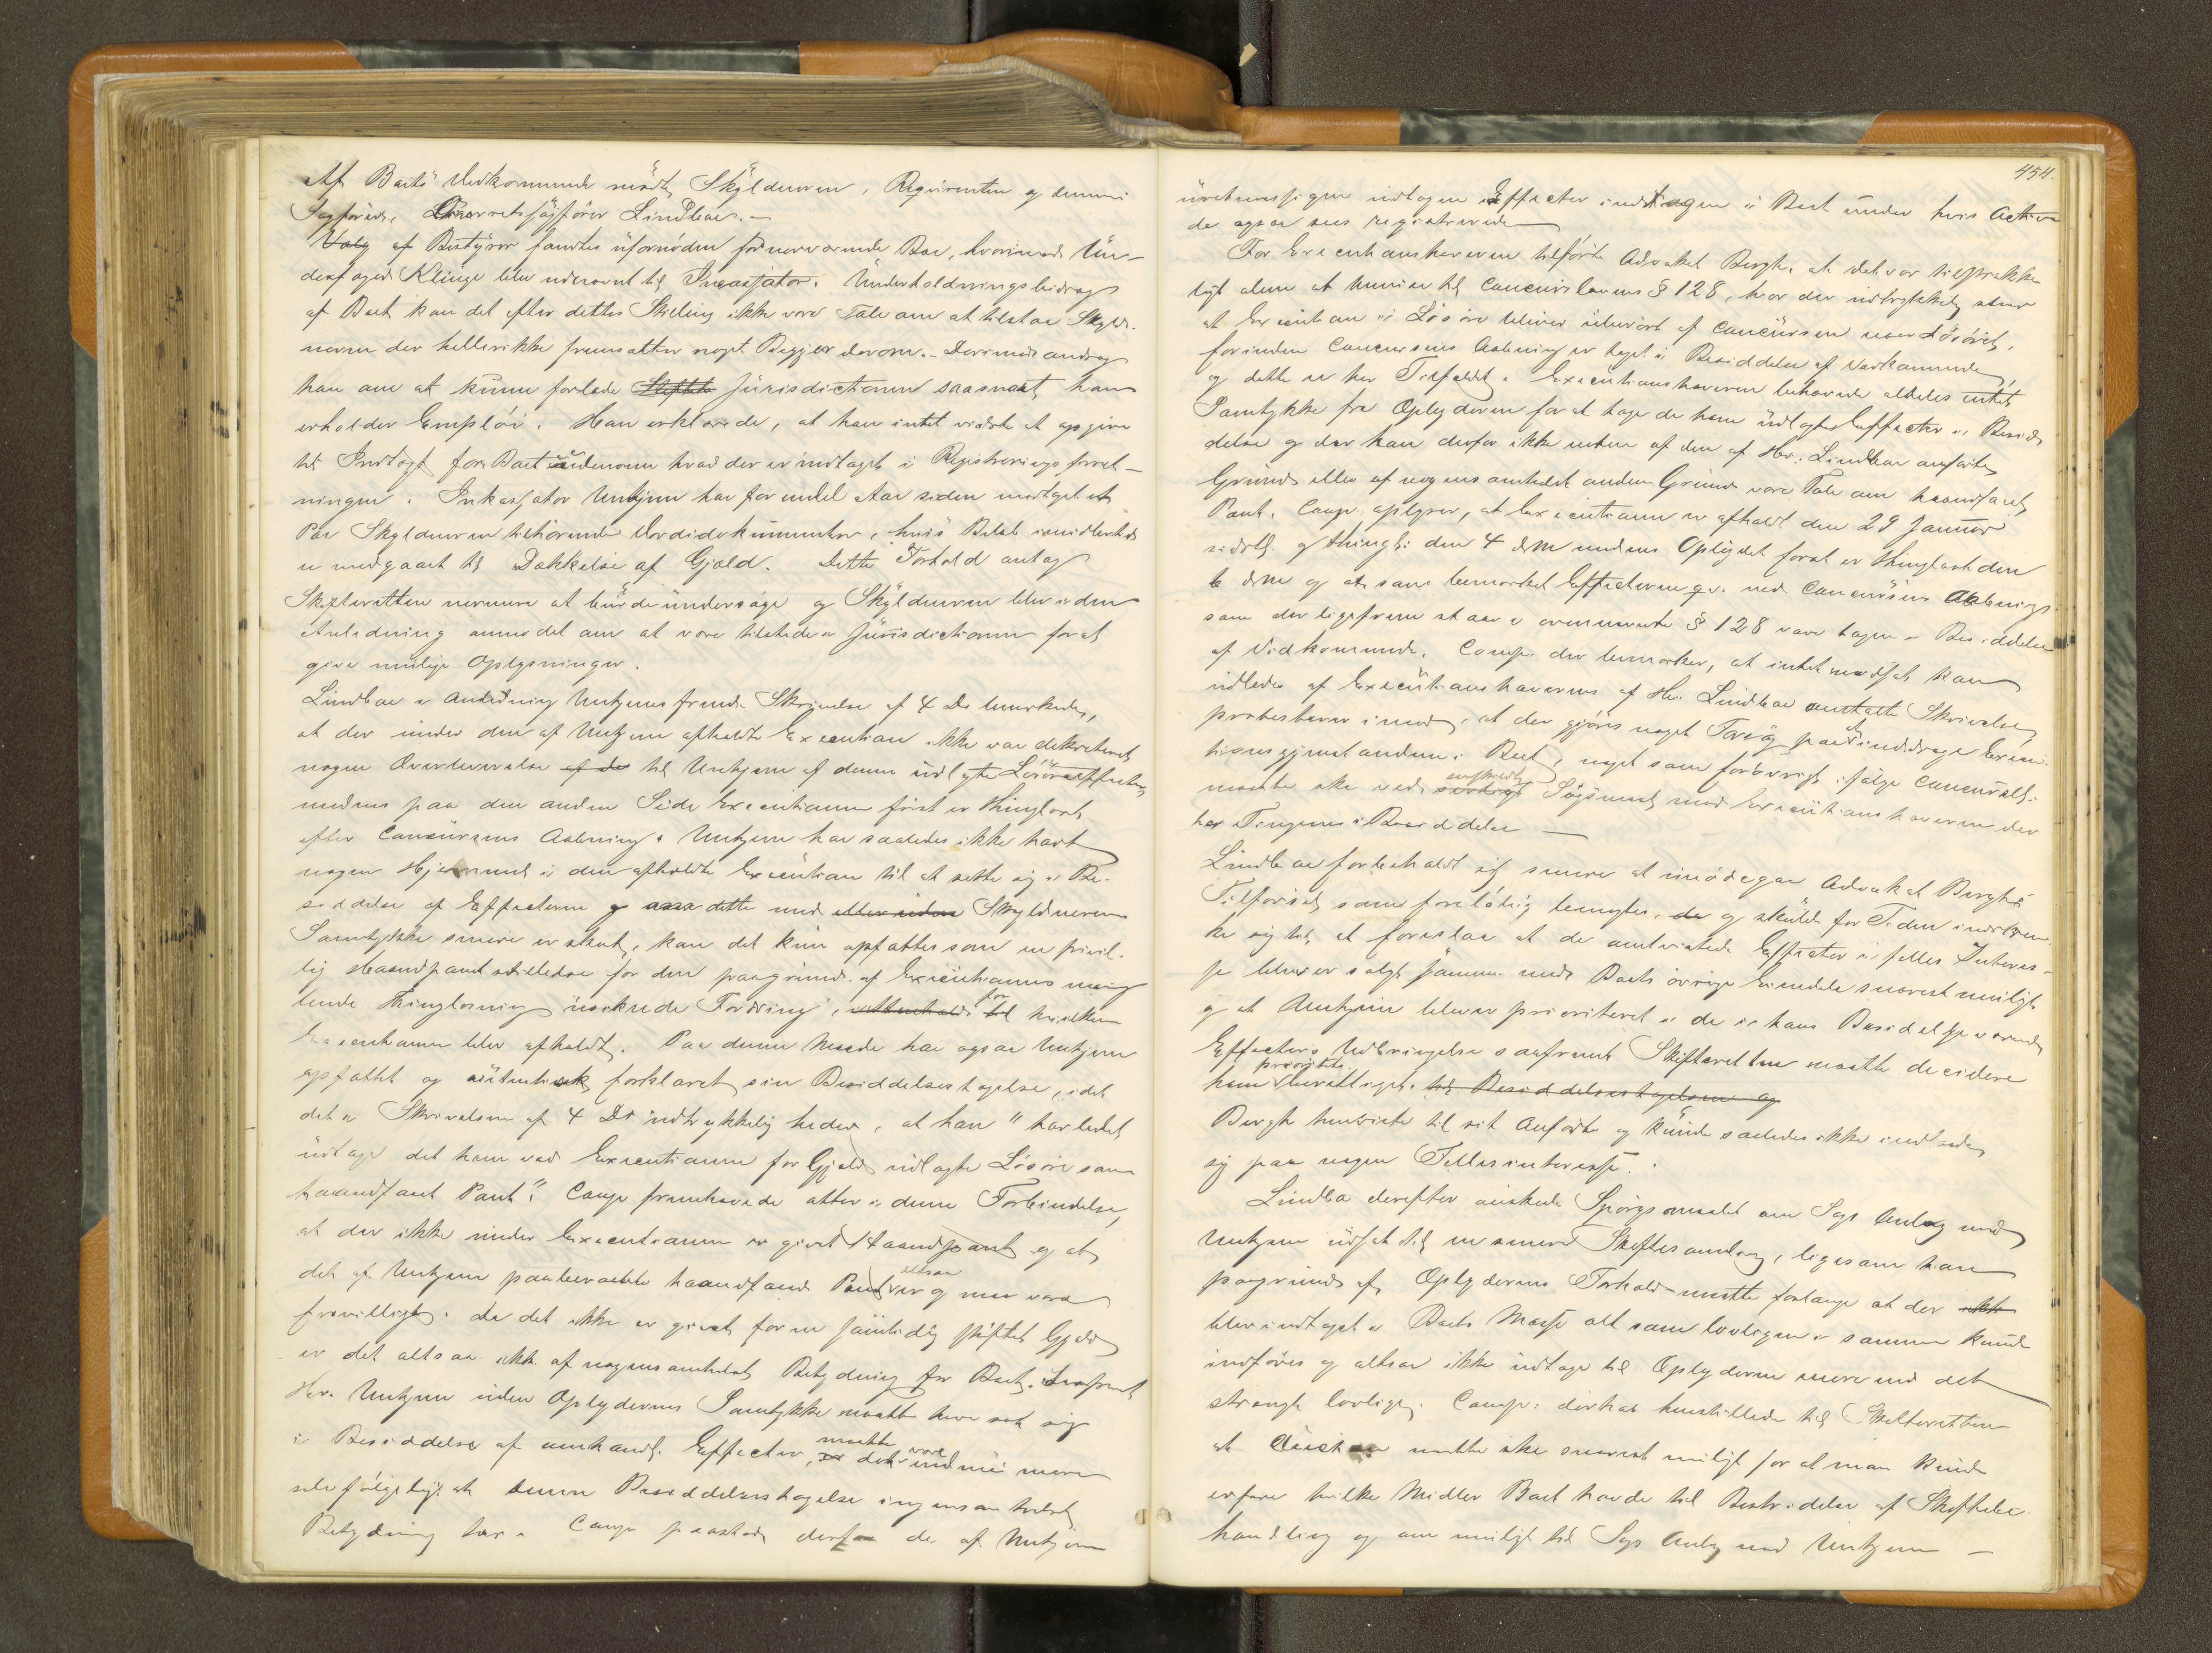 Af Boets Vedkommende mødte Skyldneren, Reqvirenten og dennes
Sagfører, Overretssagfører Lindboe.-
Valg af Bestyrer fandtes ufornøden for nærværende Boe, hvorimod Un-
derfoged Klinge blev udnævnt til Incassator. Underholdningsbidrag
af Boet kan det efter dettes Stilling ikke være Tale om at tilstaa Skyld-
neren der hellerikke fremsatter noget Begjær derom.- Derimod androg
han om at kunne forlade Jurisdictionen saasnart han
erholder Emploi. Han erklærede, at han intet vidste at opgive
til Indtægt for Boet udenom hvad der er indtaget i Registreringsforret-
ningen. Inkassator for endel Aar siden modtaget et
Par Skyldneren tilhørende Værdidokumenter, hvis Beløb imidlertid
er medgaaet til Dækkelse af Gjæld. Dette Forhold antog
Skifteretten nærmere at burde undersøge og Skyldneren blev i den
Anledning anmodet om at være tilstede i Jurisdictionen for at
give mulige Oplysninger.
Lindboe i Anledning Skrivelse af 4 Ds bemærkede,
at der under den af afholdte Execution ikke var dekreteret
nogen Overleverelse af de til af denne udlagte Løsøreeffecter,
medens paa den anden Side Executionen først er thinglæst
efter Concursens Aabning. har saaledes ikke havt
nogen Hjemmel i den afholdte Execution til at sætte sig i Be-
siddelse af Effecterne og dette med Skyldnerens
Samtykke senere er skeet, kan det kun opfattes som en frivil-
lig Haandpantstillelse for den paagrund af Executionens mang-
lende Thinglæsning usikrede Fordring, for hvilken
Executionen blev afholdt. Paa denne Maade har ogsaa
opfattet og autentisk forklaret sin Besiddelsestagelse, idet
det i Skrivelsen af 4 Ds udtrykkelig heder, at han "har ladet
udtage det ham ved Executionen for Gjæld udlagte Løsøre som
haandfaaet Pant". Comp fremhævede atter i denne Forbindelse,
at der ikke under Executionen er givet Haandpant og at
det af paaberaabte haandfaaede Pant altsaa er og maa være
frivilligt. Da det ikke er givet for en samtidig stiftet Gjæld
er det altsaa ikke af nogensomhelst Betydning for Boet. Saafremt
Hr. uden Opbyderens Samtykke maatte have sat sig
i Besiddelse af omhandl. Effecter, maatte det være end mere
selvfølgeligt at denne Besiddelsestagelse ingensomhelst
Betydning har. Comp paastod derfor de af
454.
uretmæssigen udtagne Effecter inddragne i Boet under hvis Activa
de ogsaa sees registrerede
For Executionshaveren tilførte Advokat Bergh, at det var tilstrække-
ligt alene at henvise til Concurslovens § 128, hvor der udtrykkelig staar
at Execution i Løsøre bliver uberørt af Concursen naar Løsøret
forinden Concursens Aabning er taget i Besiddelse af Vedkommende,
og dette er her Tilfældet. Executionshaveren behøvede aldeles intet
Samtykke fra Opbyderen for at tage de ham udlagte Effecter i Besid-
delse og der kan derfor ikke enten af den af Hr. Lindboe anførte
Grund eller af nogensomhelst anden Grund være Tale om haandfaaet
Pant. Comp. oplyser, at Executionen er afholdt den 29 Januar
sidstl. og thingl. den 4 dM medens Opbydet først er thinglæst den
6 dM og at som bemærket Effecterne ved Concursens Aabning
som der ligefrem staar i ovennævnte § 128 vare tagne i Besiddelse
af Vedkommende. Comp. der bemærker, at intet modsat kan
udledes af Executionshaverens af Hr. Lindboe omtalte Skrivelse
protesterer imod, at der gjøres noget Forsøg paa at inddrage Execu-
tionsgjenstandene i Boet, noget som forøvrigt ifølge Concursl.
maatte ske ved særskildt Søgsmaal mod Executionshaveren der
har Tingene i Besiddelse —
Lindboe forbeholdt sig senere at imødegaa Advokat Berghs
Tilførsel som foreløbig benegtes, og skulde for Tiden indskræn-
ke sig til at foreslaa at de omtvistede Effecter i fælles Interes-
se bliver solgt sammen med Boets øvrige Eiendele snarest muligt
og at bliver prioriteret i de i hans Besiddelse værende
Effecters Udbringelse saafremt Skifteretten maatte decidere
ham prioritets berettiget. til Besiddelsestagelsen og
Bergh henviste til sit Anførte og kunde saaledes ikke indlade
sig paa nogen Fællesinteresse.
Lindboe derefter ønskede Spørgsmaalet om Sags Anlæg mod
udsat til en senere Skiftesamling, ligesom han
paagrund af Opbyderens Forhold maatte forlange at der ikke
blev indtaget i Boets Masse alt som lovligen i samme kunde
indføres og altsaa ikke udtage til Opbyderen mere end det
strengt lovlige. Comp. derhos henstillede til Skifteretten
at Auction maatte ske snarest muligt for at man kunde
erfare hvilke Midler Boet havde til Bestridelse af Skiftebe-
handling og om muligt til Sags Anlæg mod —